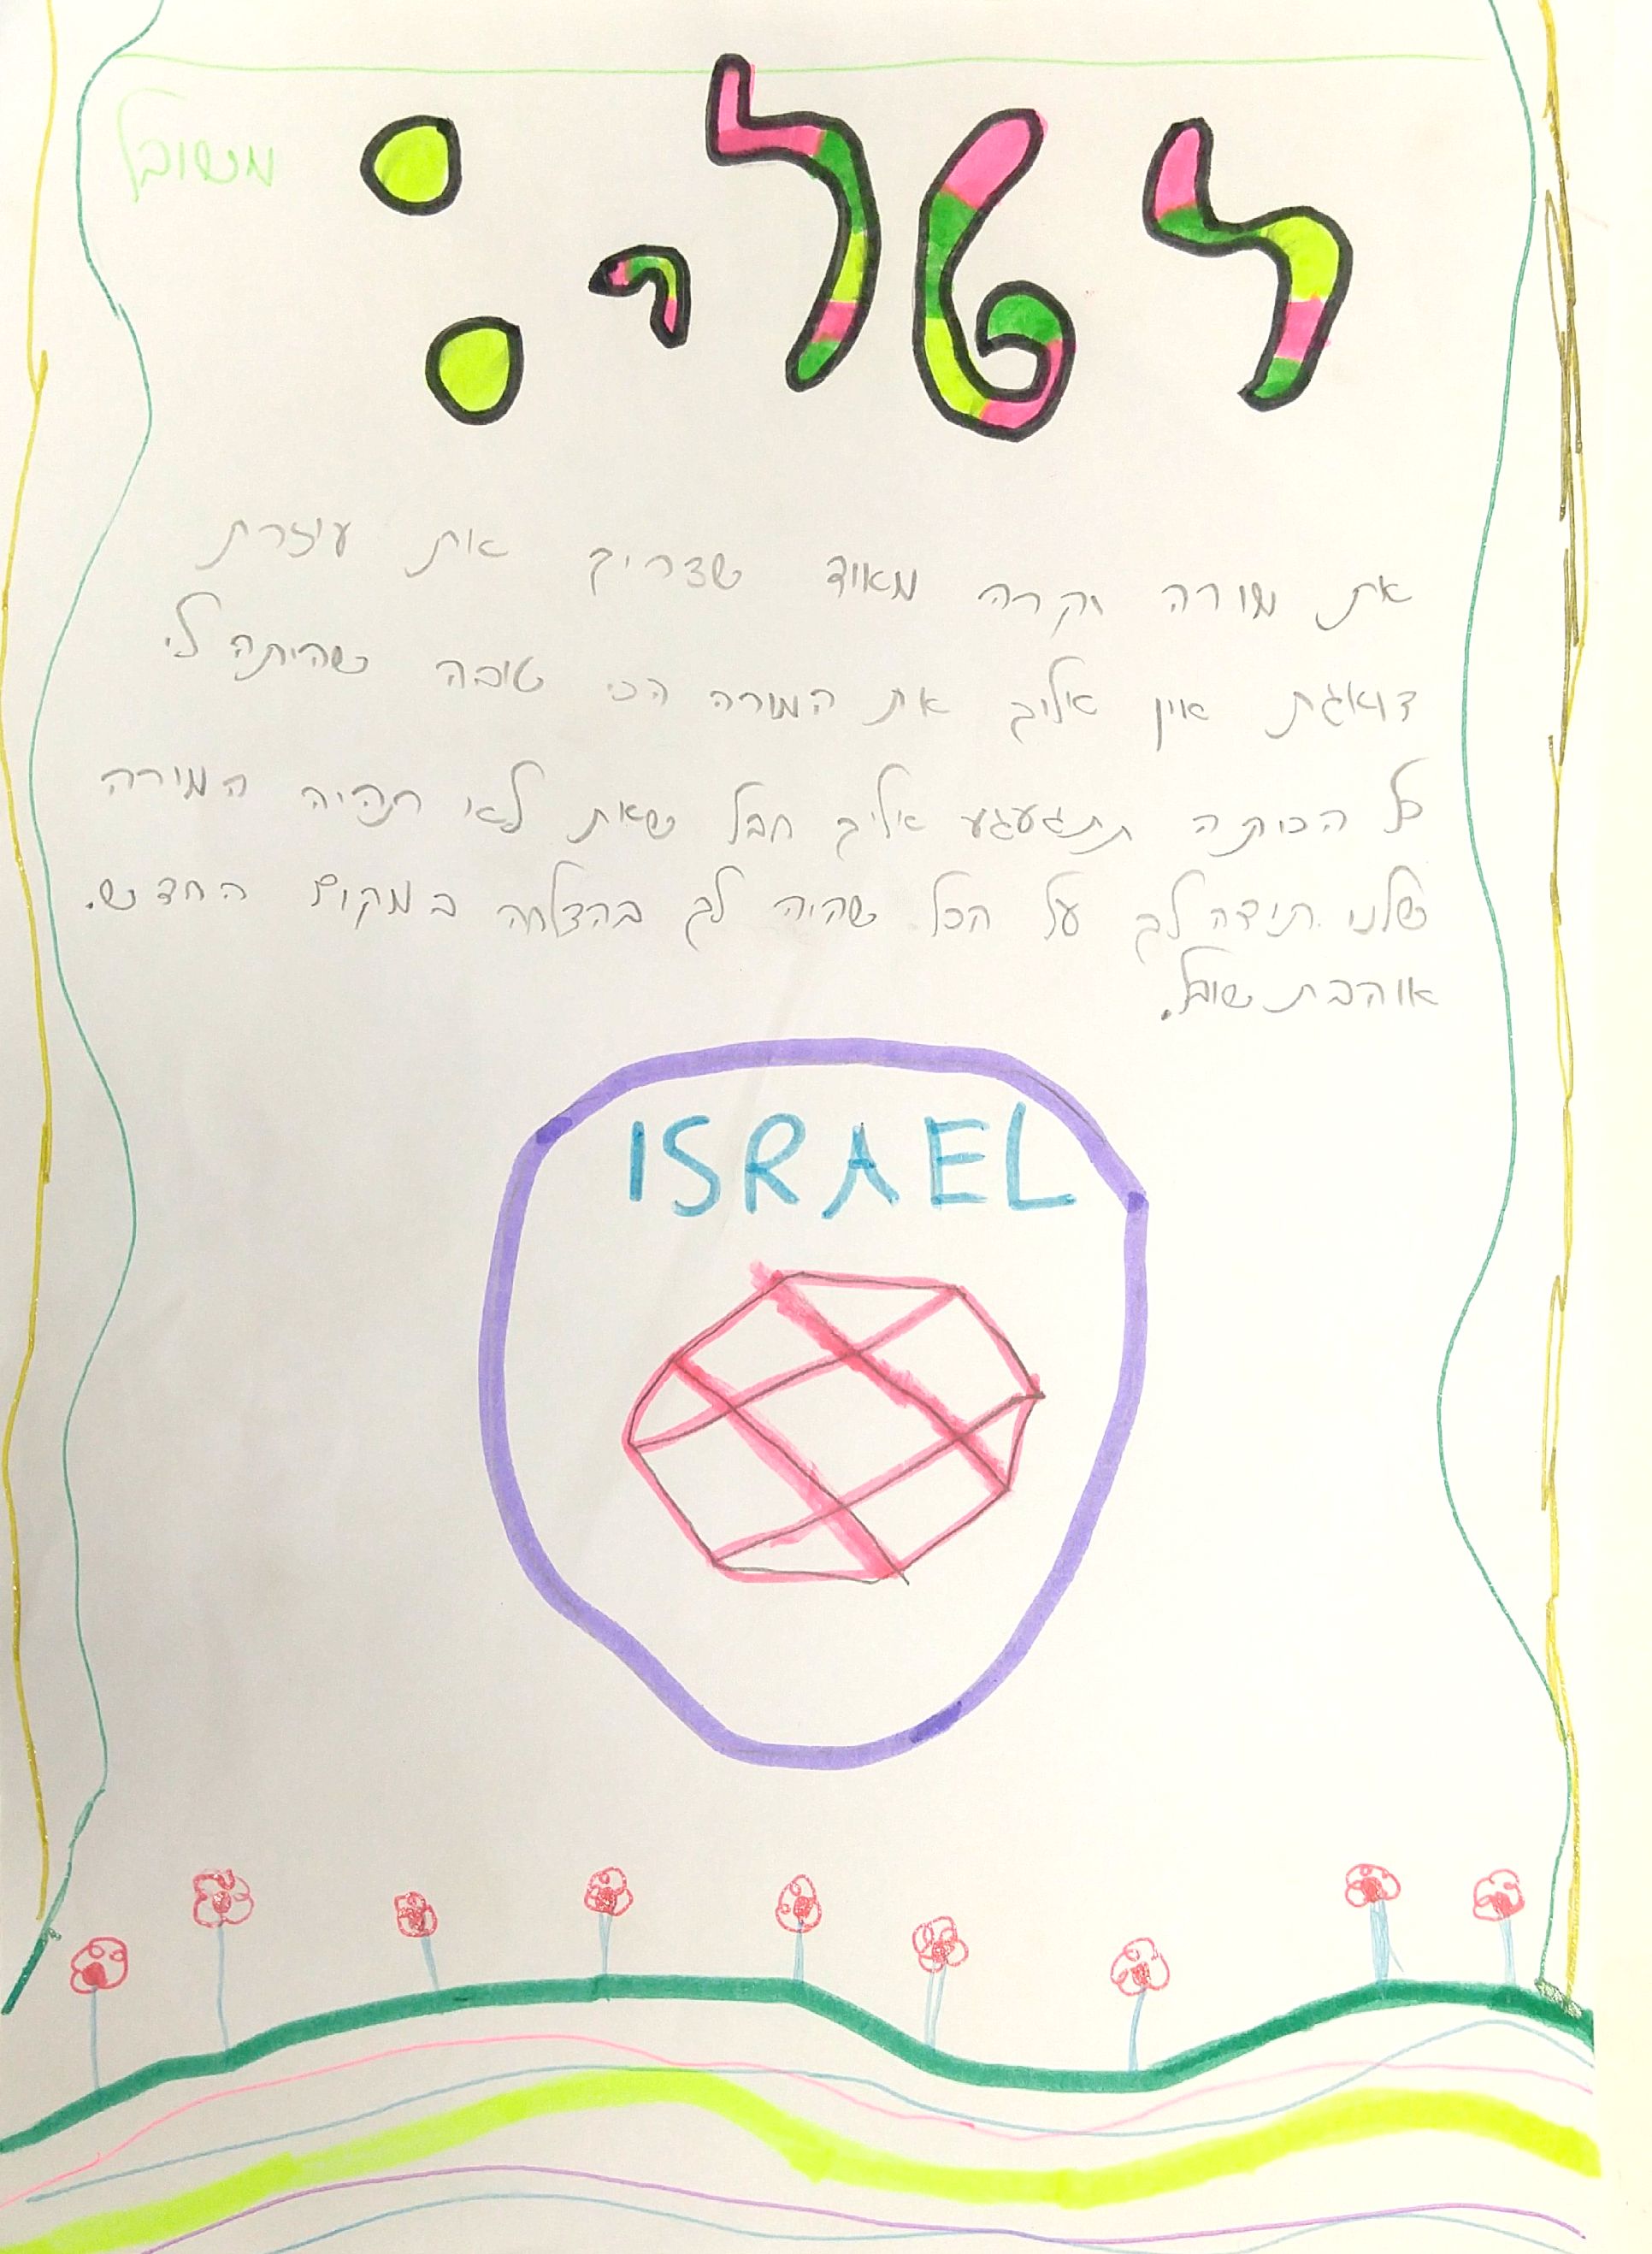 לטלי:
משובל
את מורה יקרה מאוד שצריך את עוזרת
דואגת אין אליך את המורה הכי טובה שהיתה לי.
כל הכיתה תתגעגע אליך חבל שאת לא תהיה המורה
שלנו. תודה לך על הכל שהיה לך בהצלחה במקום החדש.
אוהבת שובל.
ISRAEL